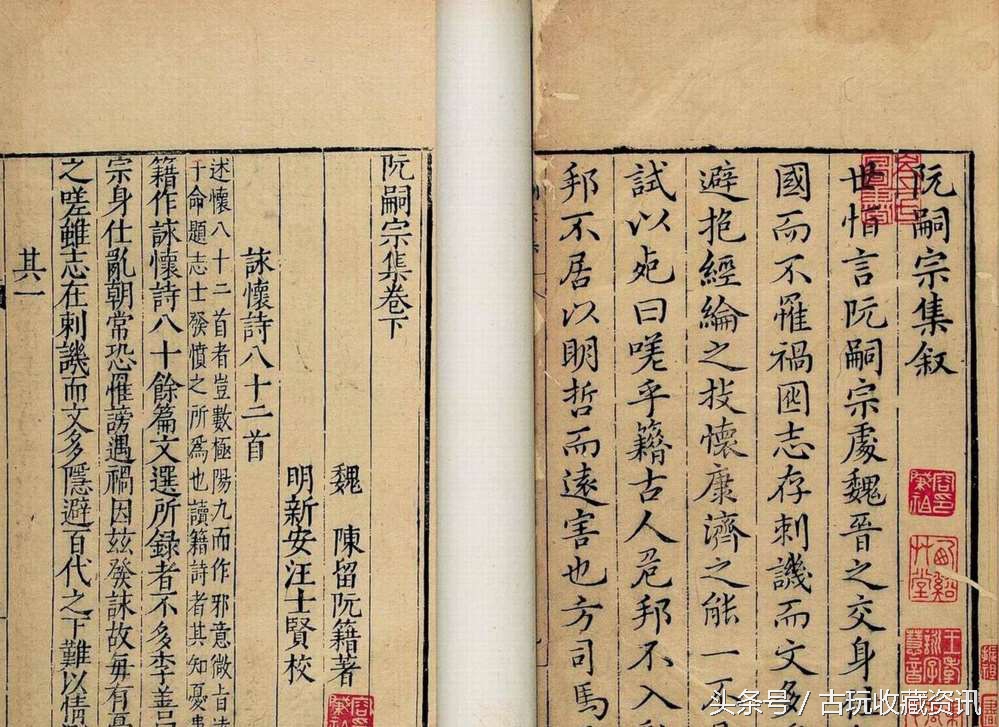 阮嗣宗集叙
世恒言阮嗣宗處魏晉之交身
國而不罹禍囮志存刺譏而文多
避抱經綸之技懷康濟之能一
試以
曰嗟乎籍古人危邦不入
邦不居以明哲而遠害也方司馬
阮嗣宗集卷下
魏 陳留阮籍著
明新安汪士賢校
詠懷詩八十二首
述懷八十二首者豈數極陽九而作邪意微旨
于命題志士發憤之所為也讀籍詩者其知憂
籍作詠懷詩八十餘篇文選所録者不多李善
宗身仕亂朝常恐罹謗遇禍因兹發詠故每有
之嗟雖志在刺譏而文多隱避百代之下難以情
其一
頭条号/古玩收藏资讯